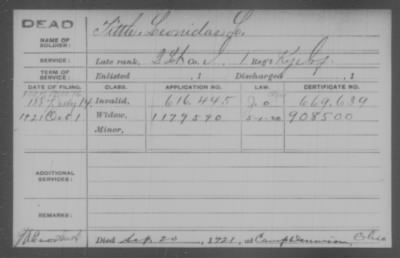 DEAD
NAME OF SOLDIER: Tittle, Leonidas G.
SERVICE: Late rank, 2 Lt Co. I, 1 Reg't Ky. Inf.
TERM OF SERVICE: Enlisted , 1 Discharged , 1
DATE OF FILING. CLASS. APPLICATION NO. LAW. CERTIFICATE NO.
14, Invalid, 616.445 669.639
1921 Oct 1 Widow, 1179590 5-1-20 908500
Minor,
ADDITIONAL SERVICES:
REMARKS:
Died Sep. 20, 1921, at Camp Dennison, Ohio